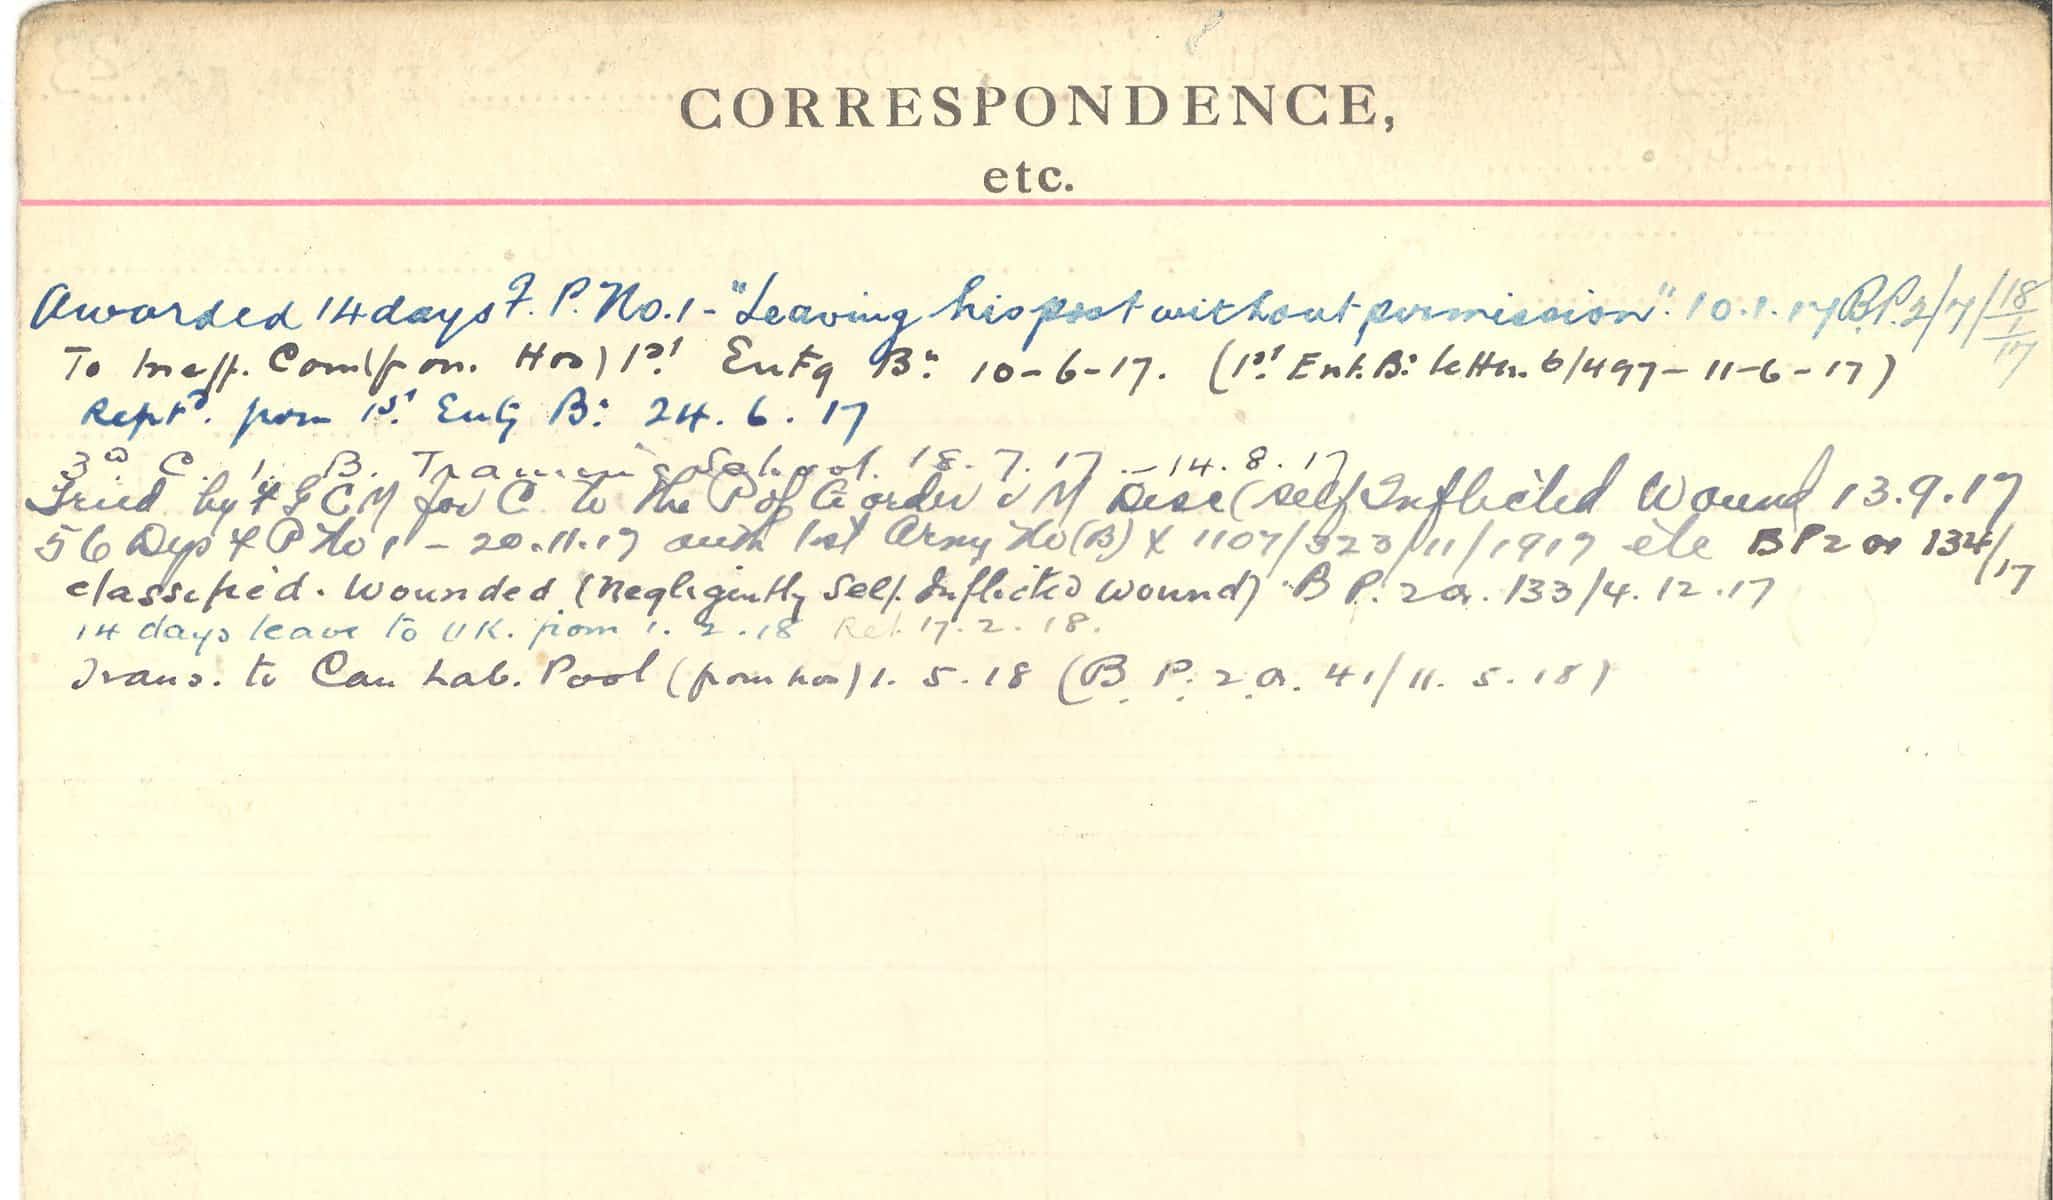 CORRESPONDENCE,
etc.
Awarded 14 days F. P. No. 1 - "Leaving his post without permission". 10.1.17 B.P.2/7/18/1/17
To Ineff. Com(from Hos) 1st Entg Bn 10-6-17. (1st Ent. Bn letter 6/497-11-6-17)
Rept'd. from 1st Entg Bn 24.6.17
3rd C. I. B. Training School. 18.7.17 - 14.8.17
Tried by F G C M for C to the P of G order & M Disc (self Inflicted Wound) 13.9.17
56 Dys F P No 1 - 20.11.17 auth 1st Army No (B) X 1107/323/11/1917 etc B P 2 or 134/17
classified. Wounded (Negligently Self. Inflicted Wound) B P. 2 a. 133/4.12.17
14 days leave to U.K. from 1.2.18 Ret. 17.2.18.
Trans. to Can Lab. Pool (from hos) 1.5.18 (B. P. 2. a. 41/11.5.18)